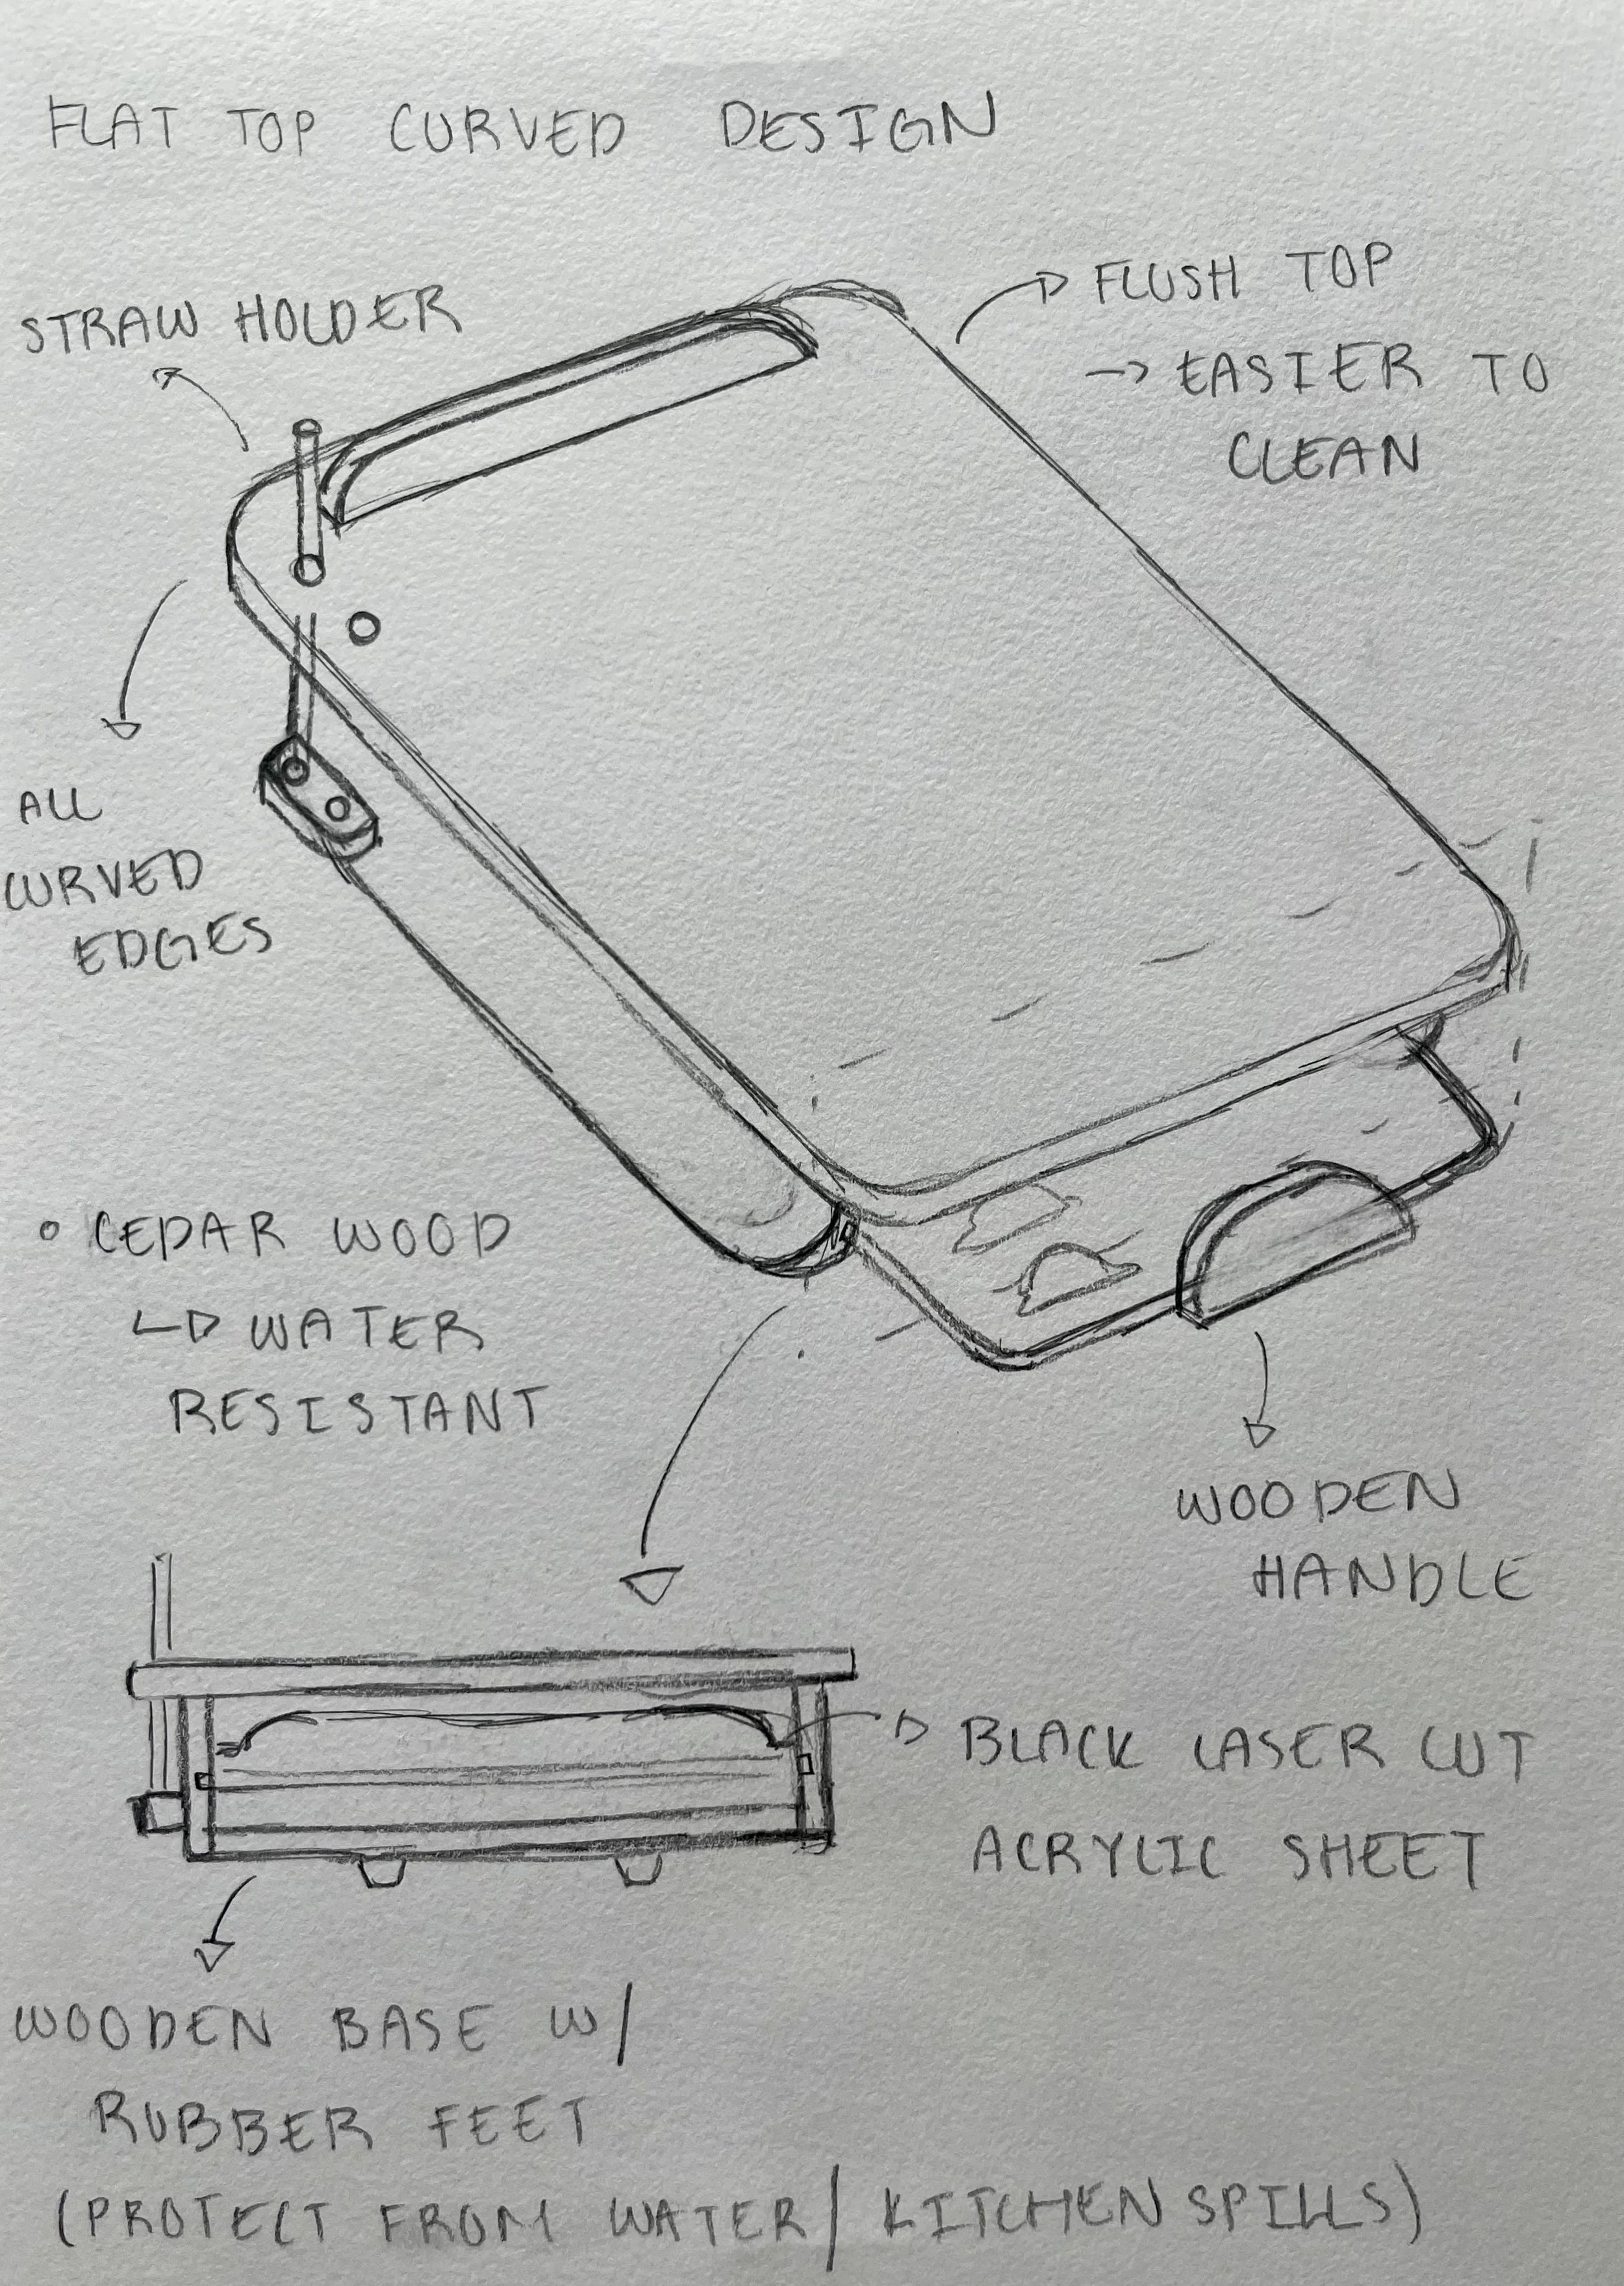 FLAT TOP CURVED DESIGN
STRAW HOLDER
FLUSH TOP
→ EASIER TO
CLEAN
ALL
CURVED
EDGES
• CEDAR WOOD
↳ WATER
RESISTANT
WOODEN
HANDLE
BLACK LASER CUT
ACRYLIC SHEET
WOODEN BASE W/
RUBBER FEET
(PROTECT FROM WATER/ KITCHEN SPILLS)